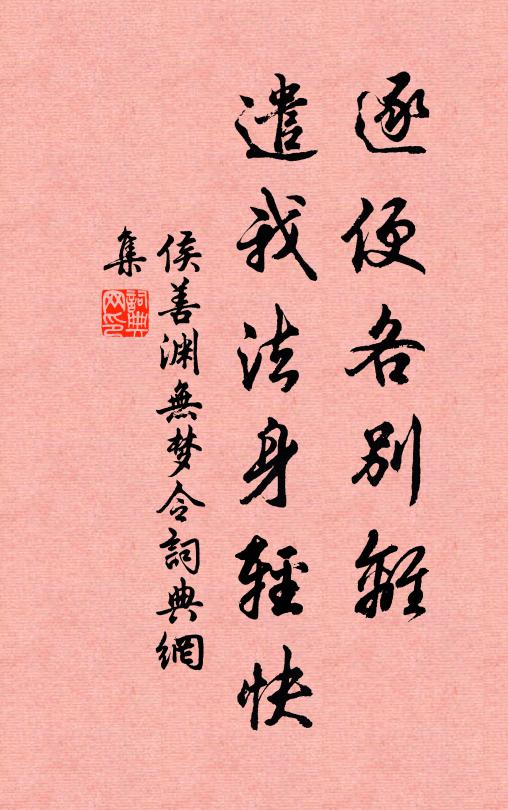 逐便各別離
遣我法身輕快
侯善渊無梦令詞典網
集
詞典
网印